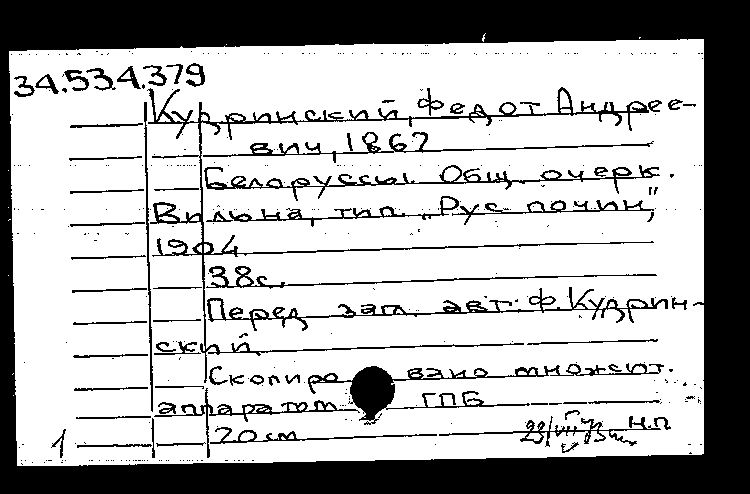 34.53.4.379
Кудринский, Федот Андрее-
вич, 1867
Белоруссы. Общ. очерк.
Вильна, тип. „Рус. почин",
1904
38с.
Перед загл. авт: Ф. Кудрин-
ский.
Скопировано множит.
аппаратом ГПБ
1 20 см Н.П